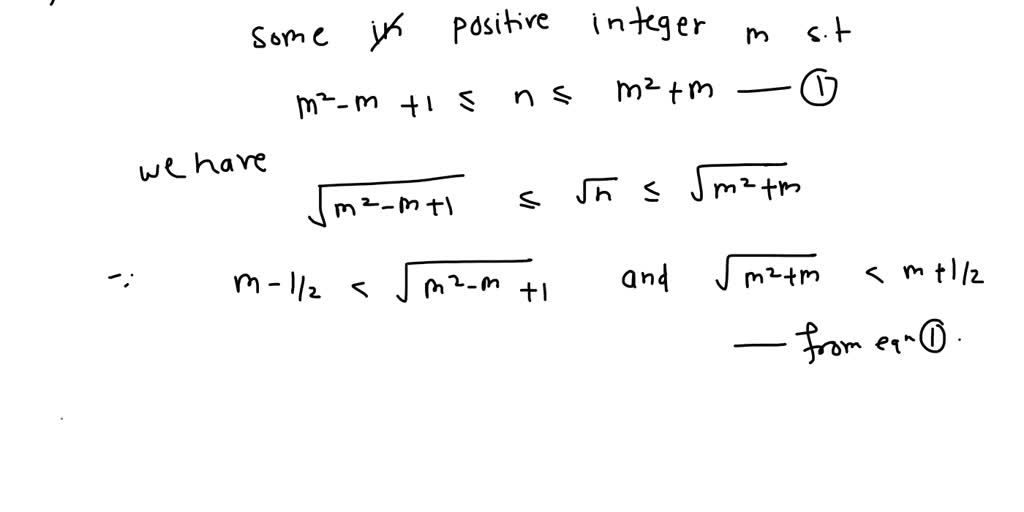 some positive integer m s.t
m²-m +1 ≤ n ≤ m²+m — ①
we have
√(m²-m+1) ≤ √n ≤ √(m²+m)
∵ m-1/2 < √(m²-m +1) and √(m²+m) < m+1/2
— from eqn ①.